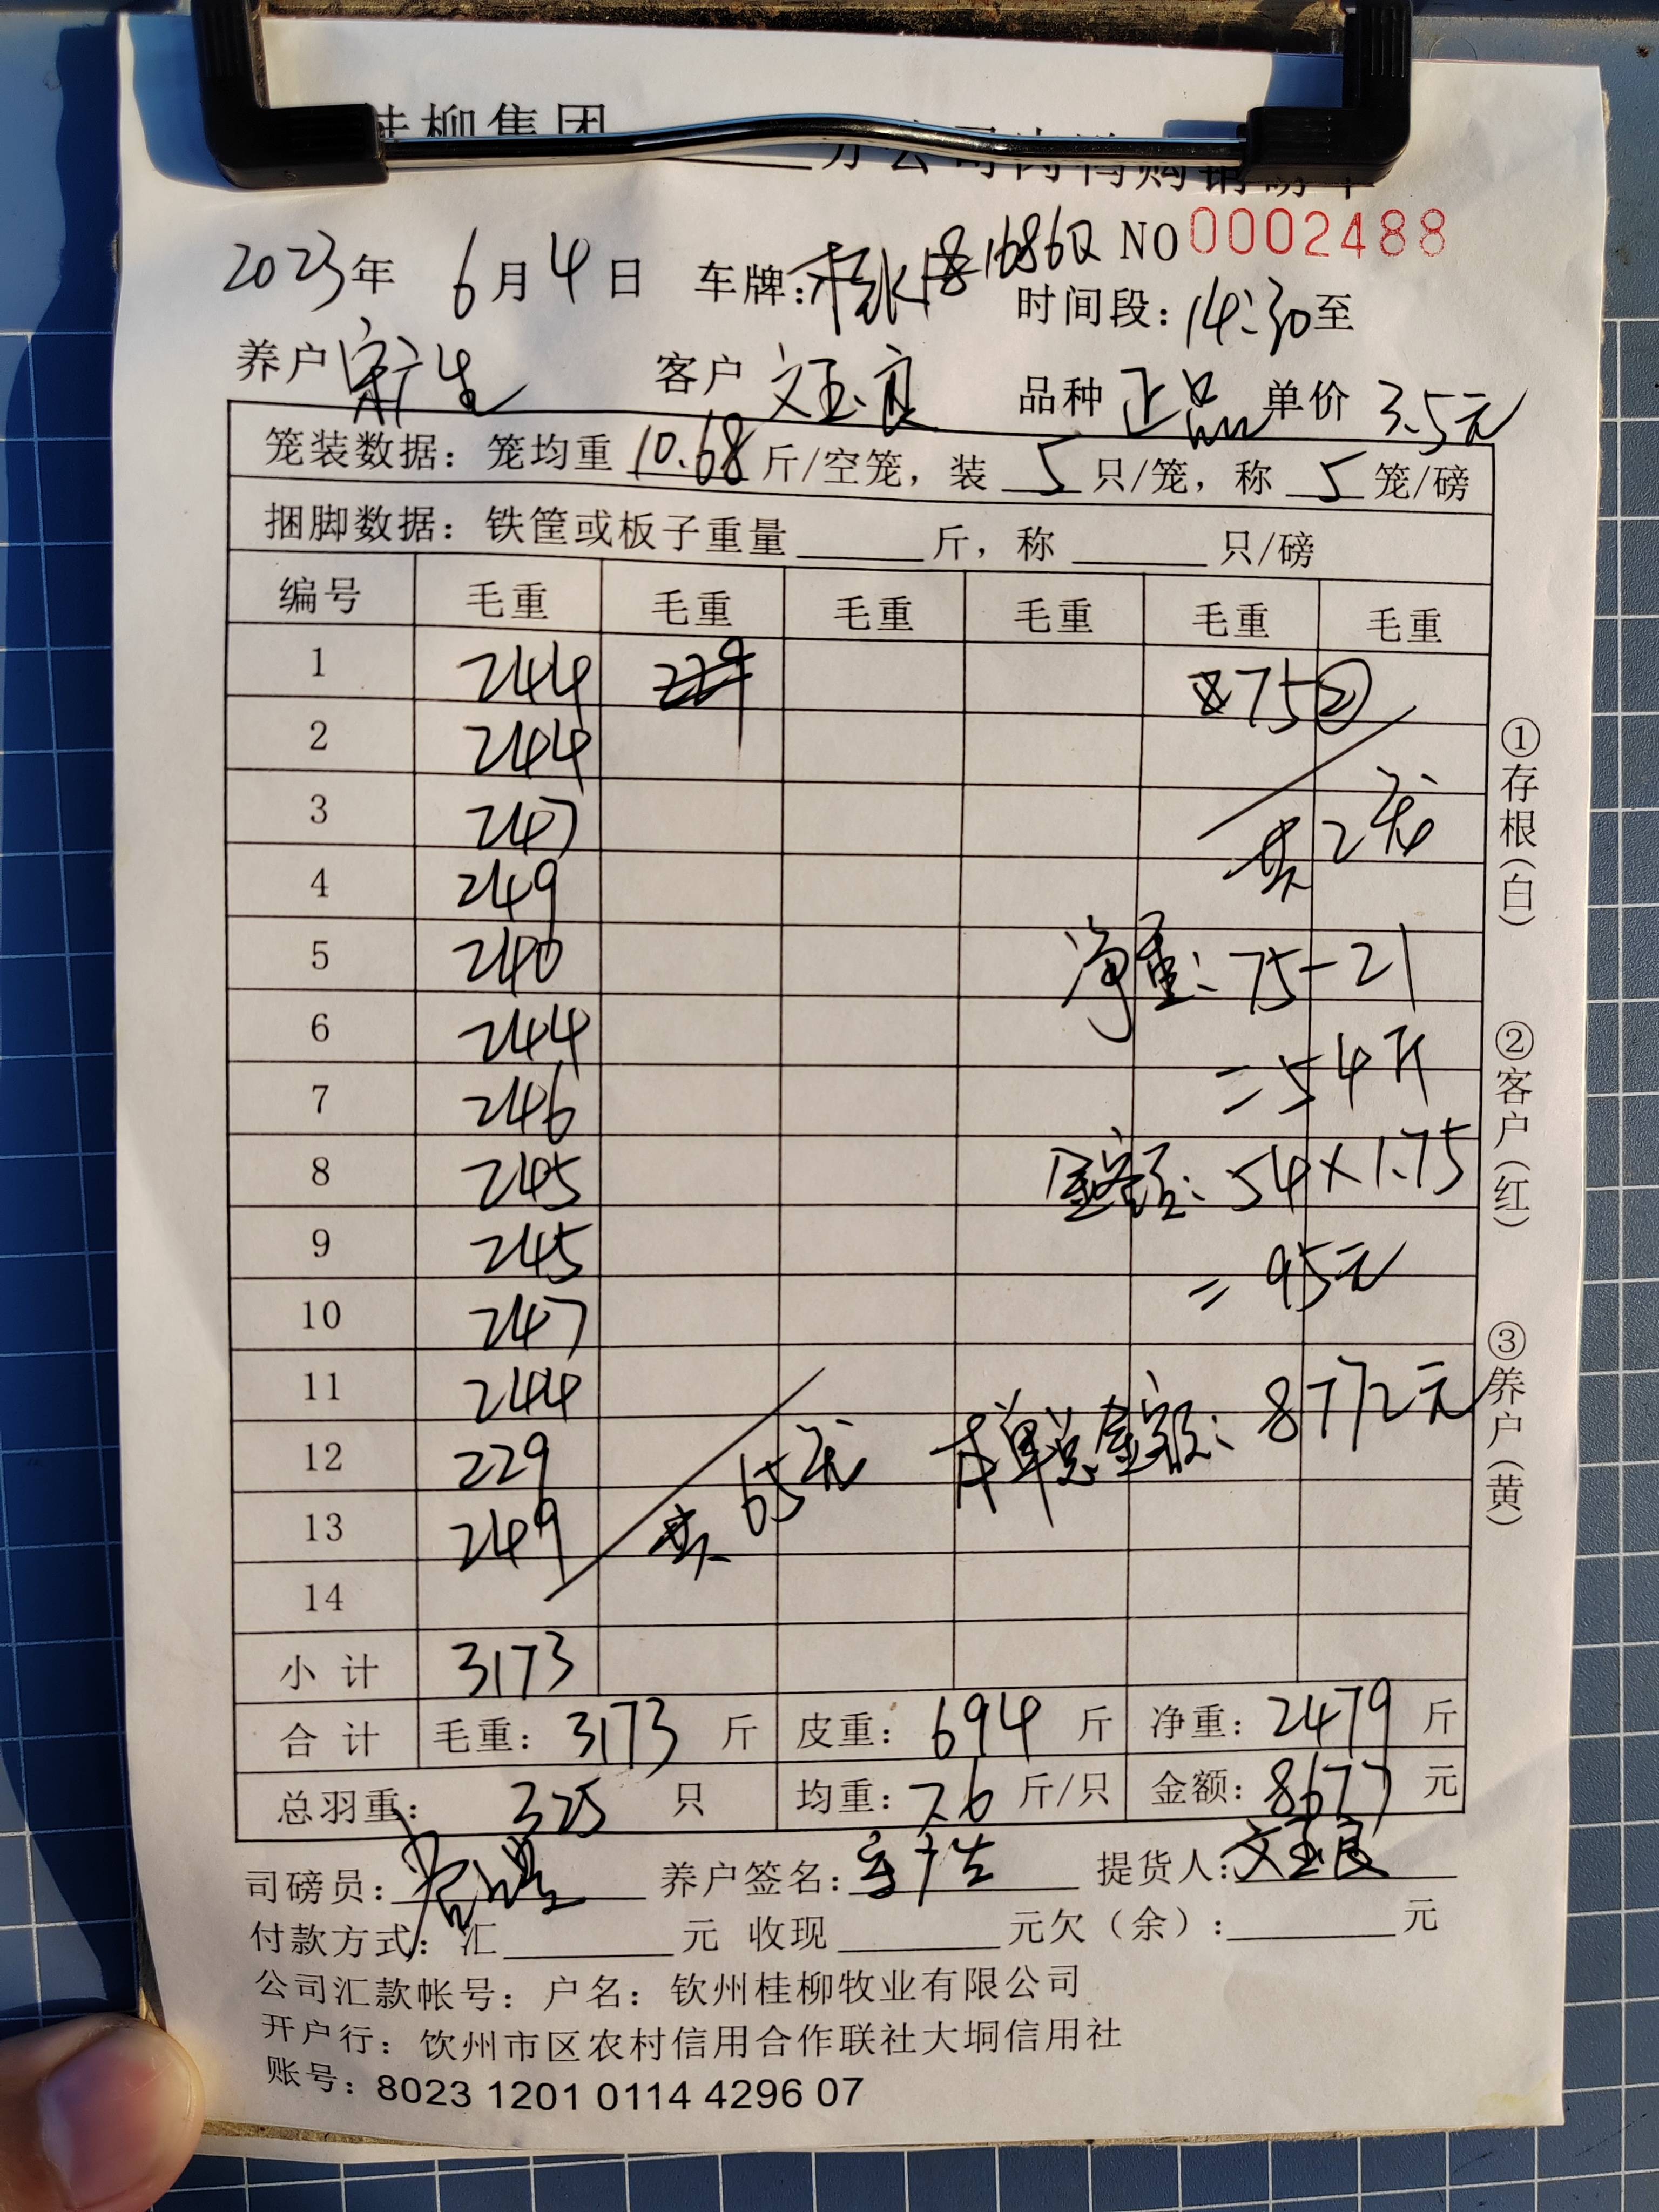 桂柳集团
分公司肉鸭购销磅单
2023年 6月4日 车牌: NO 0002488
时间段: 14:30至
养户 客户 文玉良 品种 正品 单价 3.5元
笼装数据: 笼均重 10.68 斤/空笼, 装 5 只/笼, 称 5 笼/磅
捆脚数据: 铁筐或板子重量 斤, 称 只/磅
编号 毛重 毛重 毛重 毛重 毛重 毛重
1 244 229 75②
2 244
3 247 共2笼
4 249
5 240 净重: 75-21
6 244 =54斤
7 246
8 245 金额: 54×1.75
9 245 =95元
10 247
11 244 本单总金额: 8772元
12 229
13 249 共65笼
14
小计 3173
合计 毛重: 3173 斤 皮重: 694 斤 净重: 2479 斤
总羽重: 325 只 均重: 7.6 斤/只 金额: 8677 元
司磅员: 养户签名: 提货人: 文玉良
付款方式: 汇 元 收现 元欠(余): 元
公司汇款帐号: 户名: 钦州桂柳牧业有限公司
开户行: 钦州市区农村信用合作联社大垌信用社
账号: 8023 1201 0114 4296 07
①存根(白)
②客户(红)
③养户(黄)